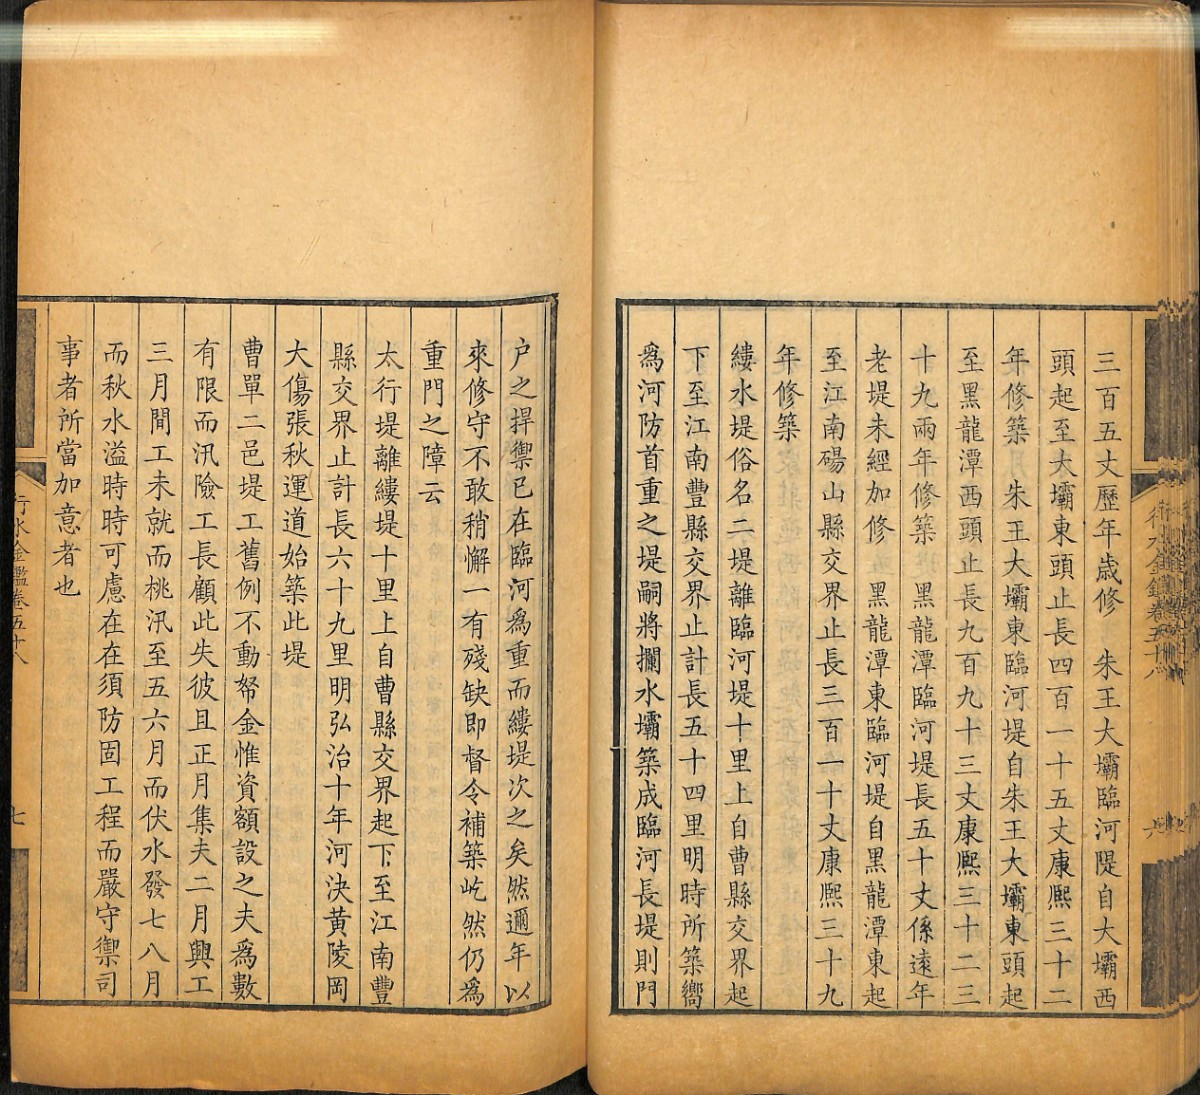 三百五丈歷年歲修　朱王大壩臨河隄自大壩西
頭起至大壩東頭止長四百一十五丈康熙三十二
年修築　朱王大壩東臨河堤自朱王大壩東頭起
至黑龍潭西頭止長九百九十三丈康熙三十二三
十九兩年修築　黑龍潭臨河堤長五十丈係遠年
老堤未經加修　黑龍潭東臨河堤自黑龍潭東起
至江南碭山縣交界止長三百一十丈康熙三十九
年修築
縷水堤俗名二堤離臨河堤十里上自曹縣交界起
下至江南豐縣交界止計長五十四里明時所築嚮
爲河防首重之堤嗣將攔水壩築成臨河長堤則門
户之捍禦已在臨河爲重而縷堤次之矣然邇年以
來修守不敢稍懈一有殘缺即督令補築屹然仍爲
重門之障云
太行堤離縷堤十里上自曹縣交界起下至江南豐
縣交界止計長六十九里明弘治十年河決黄陵岡
大傷張秋運道始築此堤
曹單二邑堤工舊例不動帑金惟資額設之夫爲數
有限而汛險工長顧此失彼且正月集夫二月興工
三月間工未就而桃汛至五六月而伏水發七八月
而秋水溢時時可慮在在須防固工程而嚴守禦司
事者所當加意者也
行水金鑑卷五十八
七